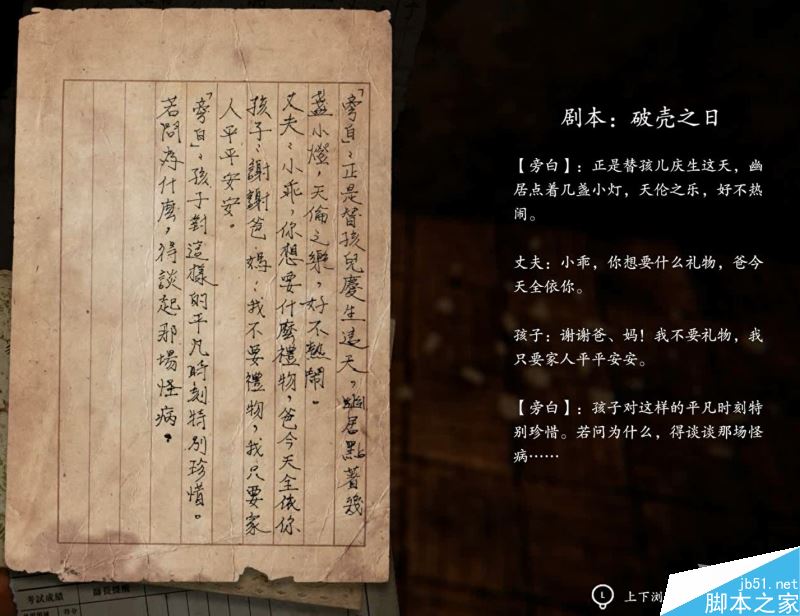 「旁白」：正是替孩兒慶生這天，幽居點著幾
盞小燈，天倫之樂，好不熱鬧。
丈夫：小乖，你想要什麼禮物，爸今天全依你
孩子：謝謝爸、媽：我不要禮物，我只要家
人平平安安。
「旁白」：孩子對這樣的平凡時刻特別珍惜。
若問為什麼，得談起那場怪病。
剧本：破壳之日
【旁白】：正是替孩儿庆生这天，幽
居点着几盏小灯，天伦之乐，好不热
闹。
丈夫：小乖，你想要什么礼物，爸今
天全依你。
孩子：谢谢爸、妈！我不要礼物，我
只要家人平平安安。
【旁白】：孩子对这样的平凡时刻特
别珍惜。若问为什么，得谈谈那场怪
病……
考試成績
得分
L 上下浏
jb51.net
脚本之家